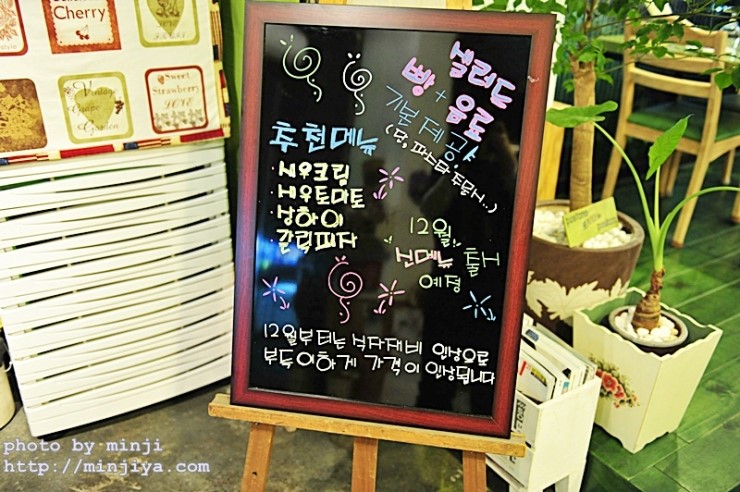 Cherry
Vintage
Grape
Garden
Sweet
Strawberry
LOVE
샐러드
빵 + 음료
기본제공
(단, 파스타 주문시..)
추천메뉴
· 새우크림
· 새우토마토
· 상하이
· 갈릭피자
12월
신메뉴 출시
예정
12월부터는 식자재비 인상으로
부득이하게 가격이 인상됩니다
photo by minji
http://minjiya.com